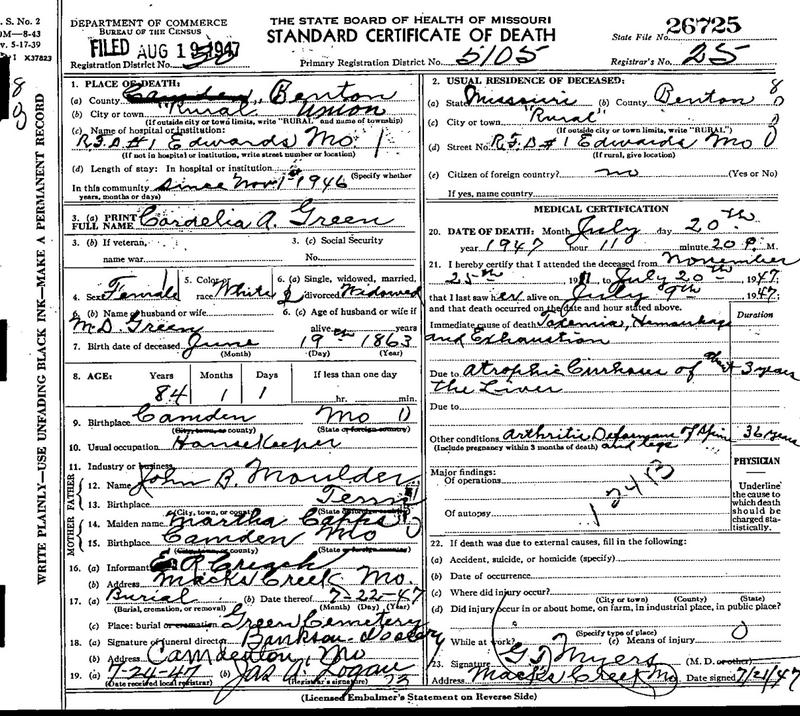 S. No. 2
0M—8-43
v. 5-17-39
I X37823
DEPARTMENT OF COMMERCE
BUREAU OF THE CENSUS
THE STATE BOARD OF HEALTH OF MISSOURI
STANDARD CERTIFICATE OF DEATH
State File No. 26725
FILED AUG 19 1947
Registration District No.
Primary Registration District No. 5105
Registrar's No. 25
WRITE PLAINLY—USE UNFADING BLACK INK—MAKE A PERMANENT RECORD
1. PLACE OF DEATH:
(a) County Camden Benton
(b) City or town "Rural" Union
(If outside city or town limits, write "RURAL" and name of township)
(c) Name of hospital or institution:
R.F.D #1 Edwards Mo
(If not in hospital or institution, write street number or location)
(d) Length of stay: In hospital or institution
(Specify whether
In this community since Nov 1st 1946
years, months or days)
3. (a) PRINT FULL NAME Cordelia A. Green
3. (b) If veteran, name war
3. (c) Social Security No.
4. Sex Female
5. Color or race White
6. (a) Single, widowed, married, divorced Widowed
6. (b) Name of husband or wife
M.D. Green
6. (c) Age of husband or wife if alive years
7. Birth date of deceased June 19 1863
(Month) (Day) (Year)
8. AGE: Years Months Days If less than one day
84 1 1 hr. min.
9. Birthplace Camden Mo
(City, town, or county) (State or foreign country)
10. Usual occupation Housekeeper
11. Industry or business
FATHER
12. Name John B. Moulder
13. Birthplace Tenn
(City, town, or county) (State or foreign country)
MOTHER
14. Maiden name Martha Capps
15. Birthplace Camden Mo
(City, town, or county) (State or foreign country)
16. (a) Informant E R Creach
(b) Address Macks Creek Mo.
17. (a) Burial (b) Date thereof 7-22-47
(Burial, cremation, or removal) (Month) (Day) (Year)
(c) Place: burial or cremation Green Cemetery
18. (a) Signature of funeral director Bankson-
(b) Address Camdenton, Mo
19. (a) 7-24-47 (b) Jas A. Logan
(Date received local registrar) (Registrar's signature)
2. USUAL RESIDENCE OF DECEASED:
(a) State Missouri (b) County Benton
(c) City or town "Rural"
(If outside city or town limits, write "RURAL")
(d) Street No. R.F.D #1 Edwards Mo
(If rural, give location)
(e) Citizen of foreign country? no (Yes or No)
If yes, name country
MEDICAL CERTIFICATION
20. DATE OF DEATH: Month July day 20th
year 1947 hour 11 minute 20 P. M.
21. I hereby certify that I attended the deceased from November
25th 19 to July 20th 1947.
that I last saw her alive on July 9th 1947.
and that death occurred on the date and hour stated above.
Duration
Immediate cause of death Toxemia, Hemorrhage
and Exhaustion
Due to Atrophic Cirrhoses of
the Liver 3 years
Due to
Other conditions Arthritis Deformans of Spine and legs 36 years
(Include pregnancy within 3 months of death)
PHYSICIAN
Underline the cause to which death should be charged statistically.
Major findings:
Of operations
Of autopsy
22. If death was due to external causes, fill in the following:
(a) Accident, suicide, or homicide (specify)
(b) Date of occurrence
(c) Where did injury occur?
(City or town) (County) (State)
(d) Did injury occur in or about home, on farm, in industrial place, in public place?
(Specify type of place)
While at work? (e) Means of injury
23. Signature G T Myers (M. D. or other)
Address Macks Creek Mo Date signed 7/21/47
(Licensed Embalmer's Statement on Reverse Side)